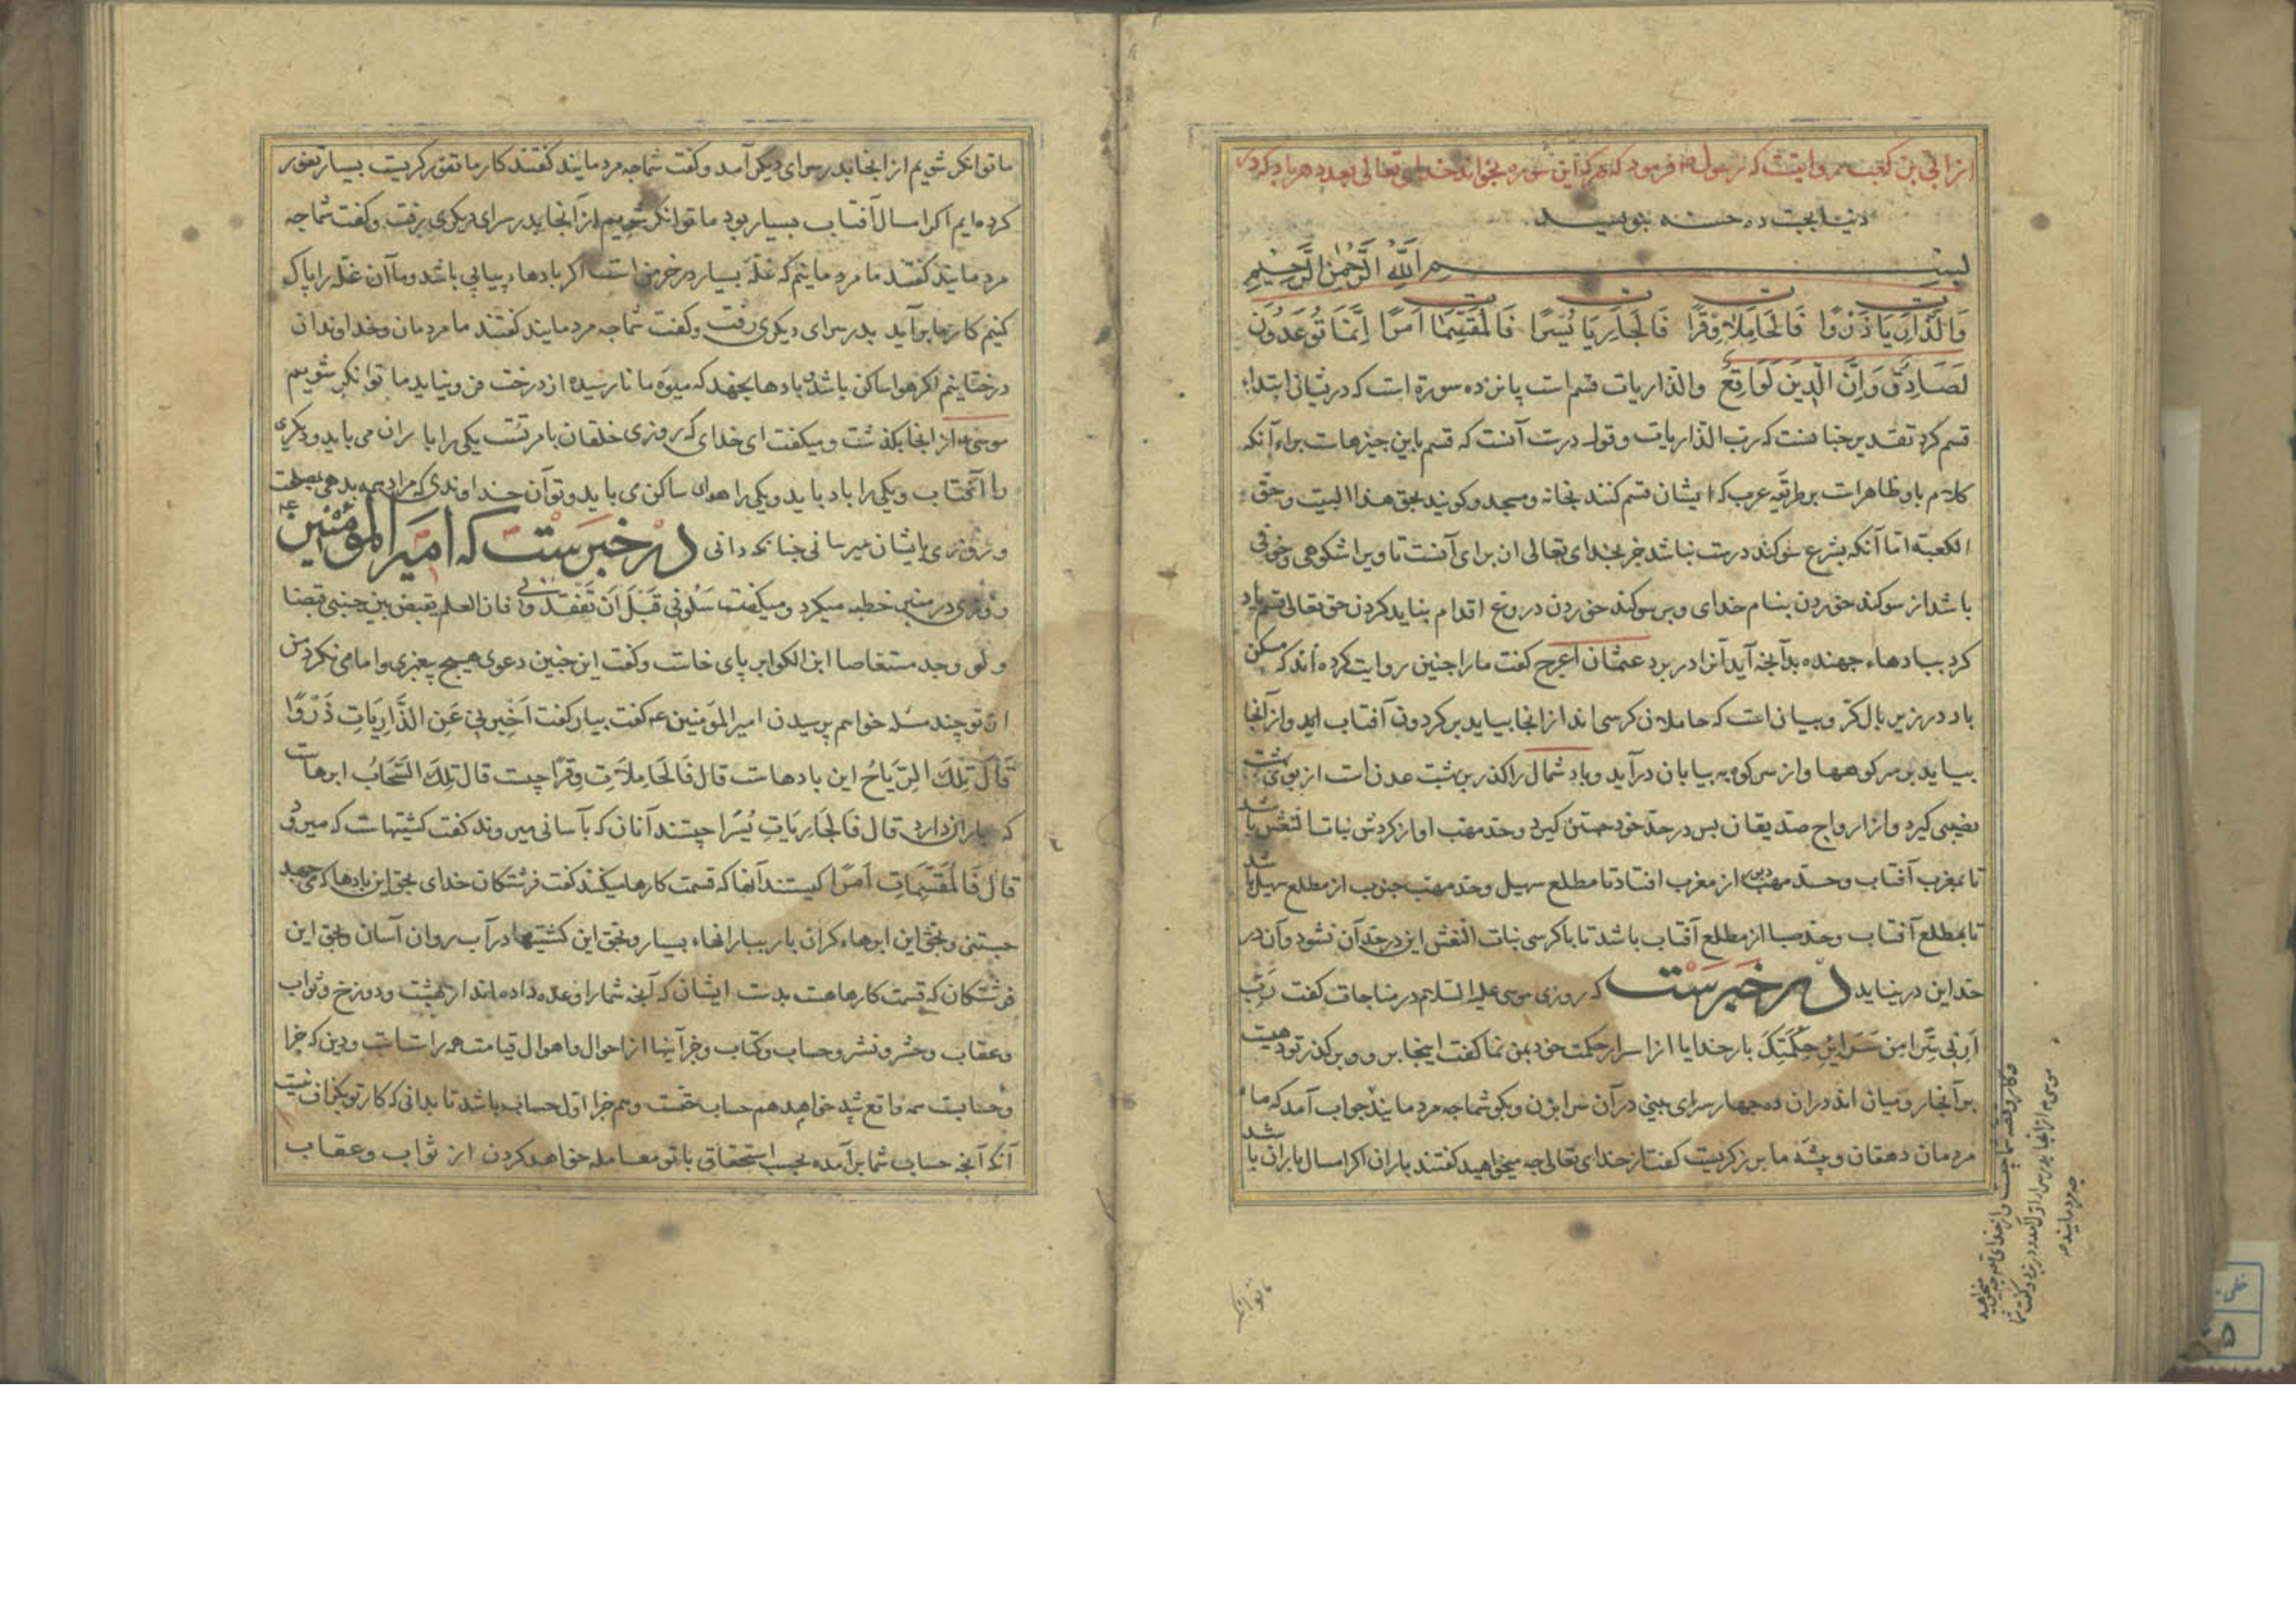 از ابی بن کعب روایتست که رسول فرمود که هرکه این سوره بخواند خدای تعالی بعدد هر باد که در
دنیا بجست ده حسنه بنویسد
بسم الله الرحمن الرحیم
وَالذَّارِيَاتِ ذَرْوًا فَالْحَامِلَاتِ وِقْرًا فَالْجَارِيَاتِ يُسْرًا فَالْمُقَسِّمَاتِ أَمْرًا إِنَّمَا تُوعَدُونَ
لَصَادِقٌ وَإِنَّ الدِّينَ لَوَاقِعٌ والذاریات قسم است پانزده سورة است که در ثنای ابتداء
قسم کرد تقدیر چنانست که رب الذاریات و قول درست آنست که قسم باین چیزهاست براء آنکه
کلام باو ظاهراست بر طریقه عرب که ایشان قسم کنند بخانه و مسجد و کویند بحق هذا البیت و حق
الکعبة اما آنکه بشرع سوکند درست نباشد جز بخدای تعالی ان برای آنست تا ویرا شکوهی و خوفی
باشد از سوکند خوردن بنام خدای و بر سوکند خوردن دروغ اقدام نباید کردن حق تعالی قسم یاد
کرد ببادهاء جهنده بدآنچه آید آنرا در برد عثمان اعرج کفت مارا چنین روایت کرده اند که مسکن
باد در زیر بال کروبیان است که حاملان کرسی اند از انجا بیاید بر کردون آفتاب اید و از آنجا
بیاید بر سر کوهها و از سر کوه به بیابان درآید و باد شمال را کذر بر بهشت عدن است از بوی بهشت
نصیبی کیرد و از ارواح صدیقان پس در حد خود جستن کیرد و حد مهب او از کردش بنات النعش باشد
تا بمغرب آفتاب و حد مهب دبور از مغرب افتاد تا مطلع سهیل و حد مهب جنوب از مطلع سهیل باشد
تا بمطلع آفتاب و حد صبا از مطلع آفتاب باشد تا با کرسی بنات النعش این در حد آن نشود و آن در
حد این درنیاید در خبرست که روزی موسی علیه السلام در مناجات کفت رب
أرنی سرا من سرایر حکمتک بار خدایا از اسرار حکمت خود بمن نما کفت اینجا برو و بر کذر تو دهیست
بر آنجا رو میان اند دران ده چهار سرای بینی در آن سرا بزن و بکو شما چه مردمانید جواب آمد که ما
مردمان دهقان و پیشه ما برزکریست کفت از خدای تعالی چه میخواهید کفتند باران اکر امسال باران باشد
موسی از انجا بدر سرای اول آمد و در بزد و کفت شما
چه مردمانید
ما توانکر
ما توانکر شویم از انجا بدر سرای دیکر آمد و کفت شما چه مردمانید کفتند کار ما کریست بسیار
کرده ایم اکر امسال آفتاب بسیار بود ما توانکر شویم از آنجا بدر سرای دیکری رفت و کفت شما چه
مردمانید کفتند ما مردمانیم که غله بسیار در خرمن است اکر بادهاء پیاپی باشد و ما آن غله را پاک
کنیم کار ما برآید بدر سرای دیکری رفت و کفت شما چه مردمانید کفتند ما مردمان و خداوندان
درختانیم اکر هوا ساکن باشد و بادها بجهد که میوه ما نارسیده از درخت فرونیاید ما توانکر شویم
موسی از انجا بکذشت و میکفت ای خدای که روزی خلقان بامر تست یکی را باران می باید و دیکری
را آفتاب و یکی را باد باید و یکی را هوای ساکن می باید و تو آن خداوندی که مراد همه بدهی
و روزی بایشان میرسانی چنانکه دانی در خبرست که امیر المؤمنین
روزی در منبر خطبه میکرد و میکفت سَلُونِی قَبْلَ أَنْ تَفْقِدُونِی فان العلم یفیض بین جنبی فیضا
ولو وجد مستفاضا ابن الکوا بر پای خاست و کفت این چنین دعوی هیچ پیغمبری و امامی نکرد من
از تو چند مسله خواهم پرسیدن امیر المؤمنین کفت بیار کفت أَخْبِرْنِی عَنِ الذَّارِيَاتِ ذَرْوًا
قَالَ تِلْكَ الرِّيَاحُ این بادهاست قال فَالْحَامِلَاتِ وِقْرًا چیست قال تِلْكَ السَّحَابُ ابرهاست
که باران دارد قال فَالْجَارِيَاتِ يُسْرًا چیستند آنان که بآسانی میروند کفت کشتیهاست که میرود
قال فَالْمُقَسِّمَاتِ أَمْرًا کیستند آنها که قسمت کارها میکنند کفت فرشتکان خدای بحق این بادها که می جهد
جستنی و بحق این ابرهاء کران بار ببارانهاء بسیار و بحق این کشتیها در آب روان آسان و بحق این
فرشتکان که قسمت کارهاست بدست ایشان که آنچه شمارا وعده داده اند از بهشت و دوزخ و ثواب
و عقاب و حشر و نشر و حساب و کتاب و جز آینها از احوال و اهوال قیامت همه راستست و دین که جزا
و حسابست همه واقع شد خواهد هم حساب حقست و هم جزا اول حساب باشد تا بدانی که کار تو بکزاف نیست
آنکه آنچه حساب شما برآمده بحسب استحقاق با تو معامله خواهد کردن از ثواب و عقاب